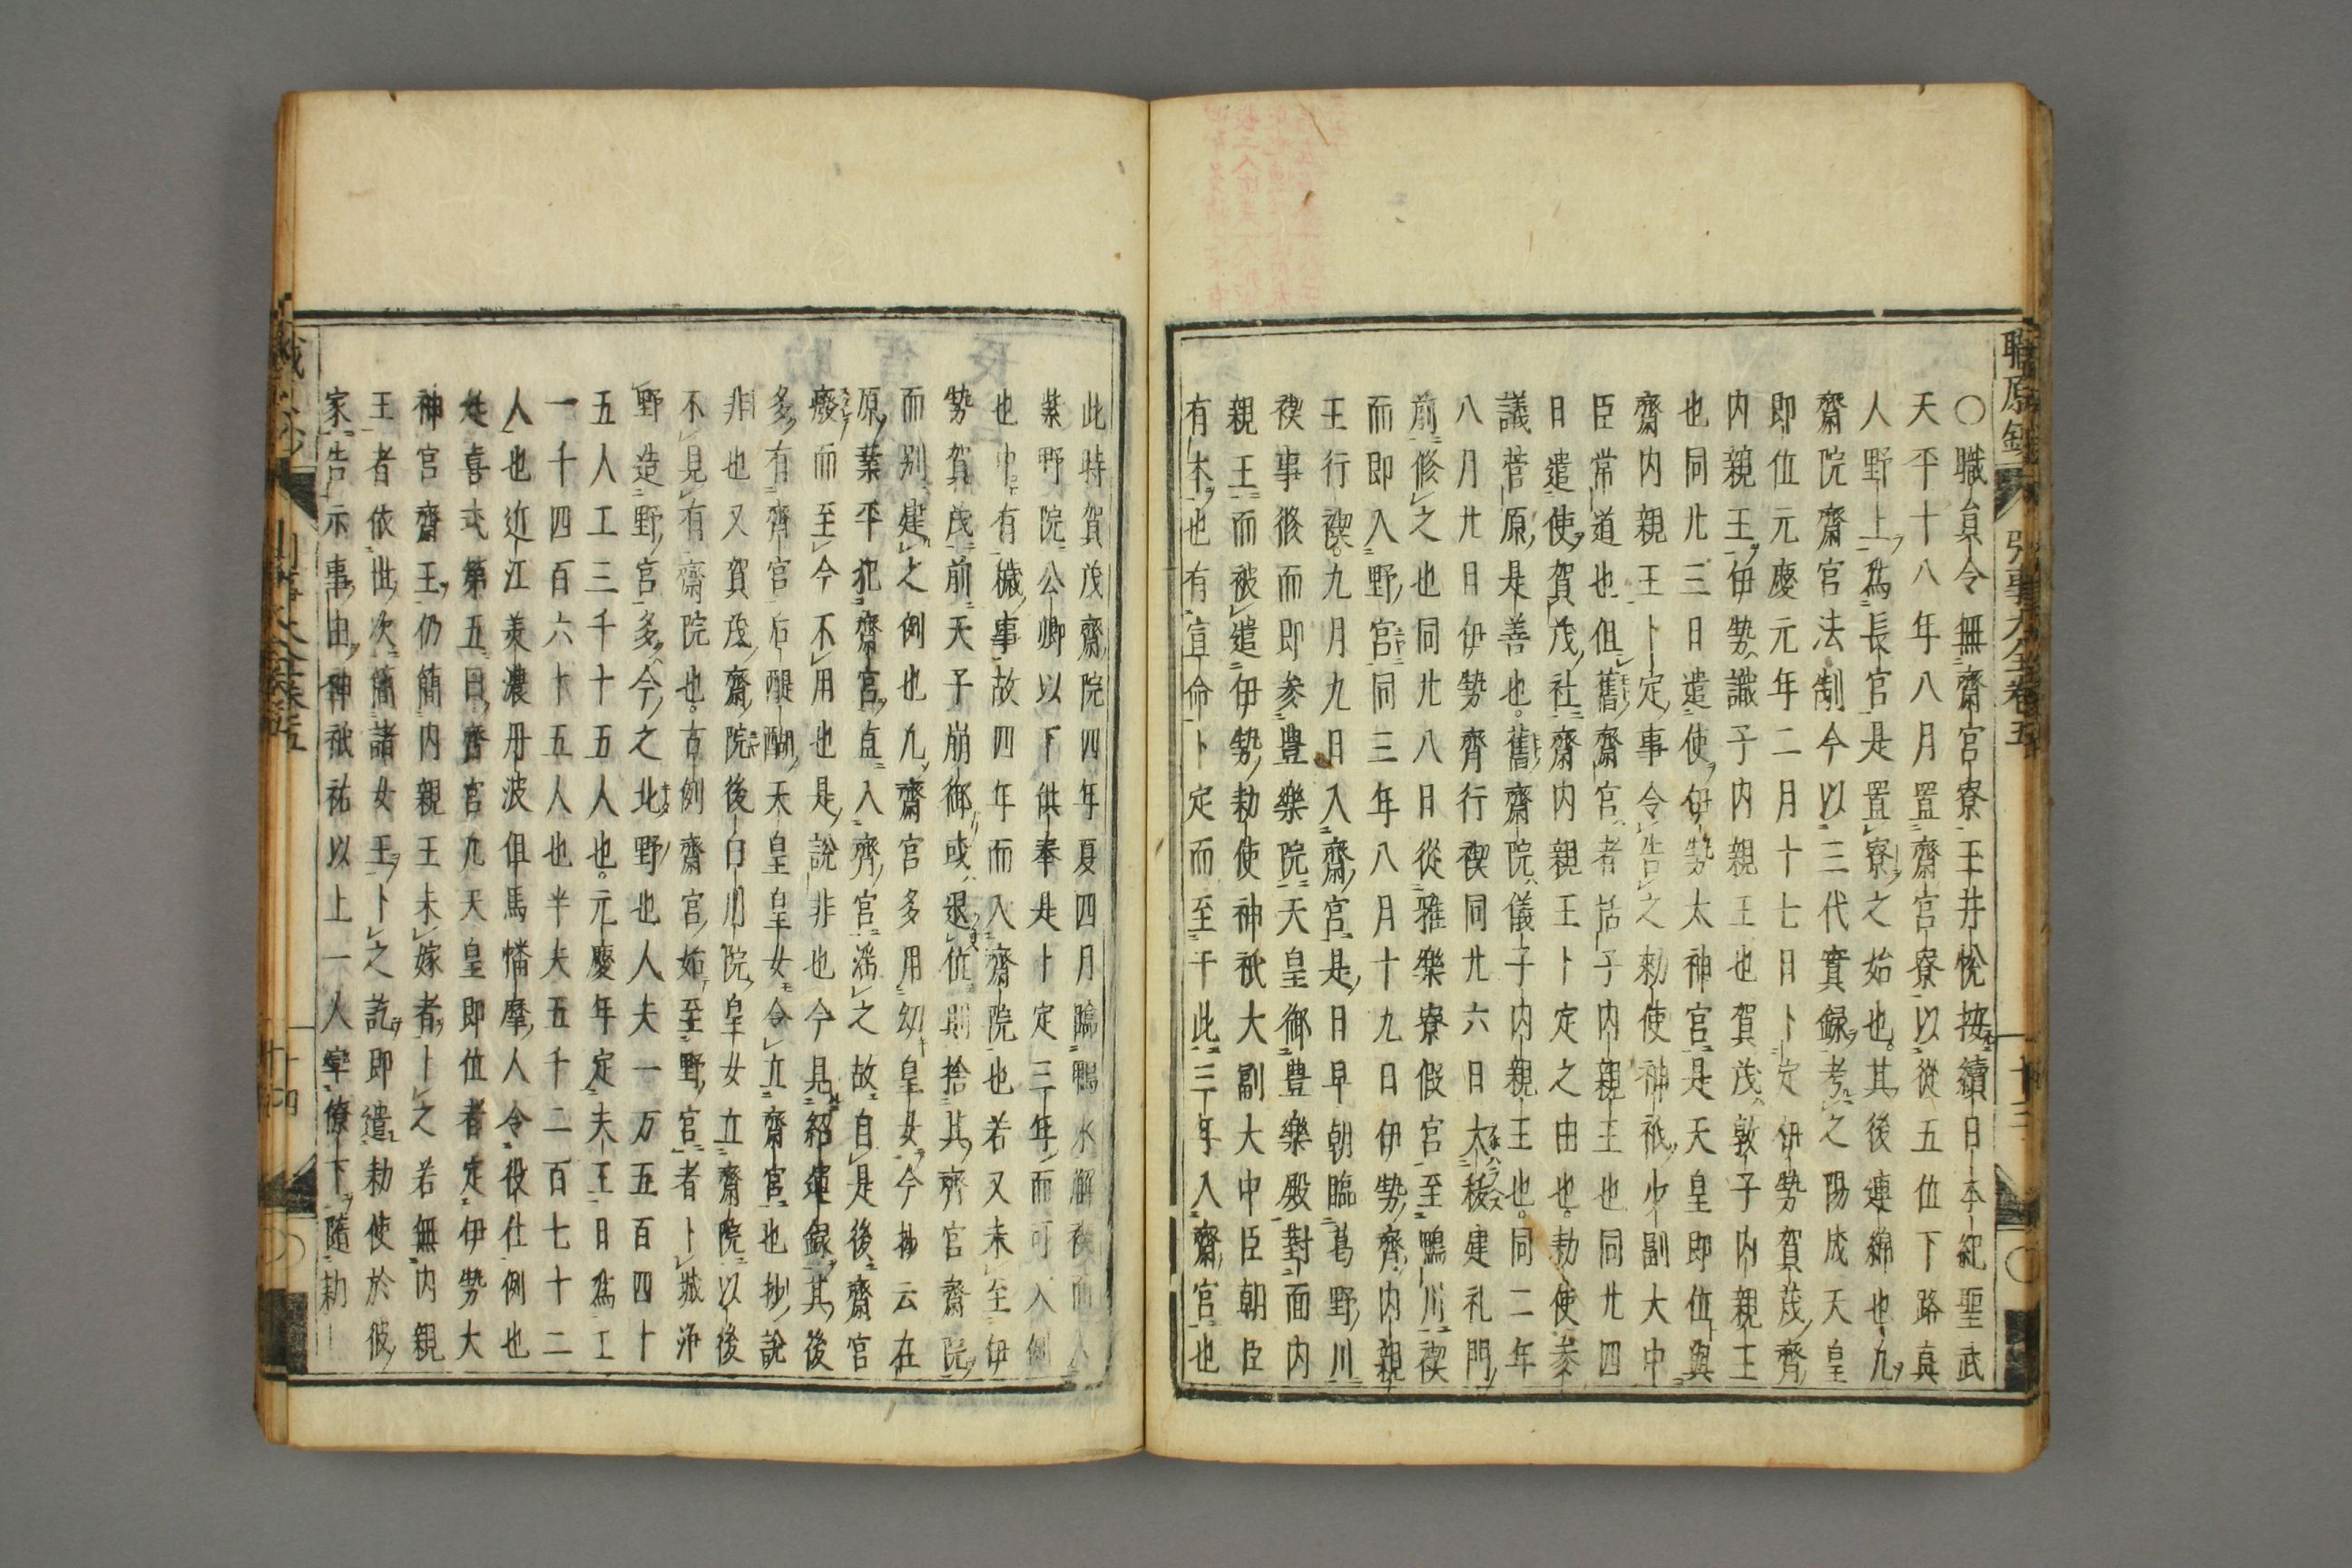 職原鈔
引事大全卷五
〇職員令無齋官寮王井悅按續日本紀聖武
天平十八年八月置齋宮寮以從五位下路真
人野上為長官是置寮之始也其後連綿也九
齋院齋官法制今以三代實錄考之陽成天皇
即位元慶元年二月十七日卜定伊勢賀茂齊
内親王伊勢識子内親王也賀茂敦子内親王
也同廿三日遣使伊勢太神官是天皇即位與
齋内親王卜定事令告之勅使神祇少副大中
臣常道也但舊齋官者恬子内親王也同廿四
日遣使賀茂社齋内親王卜定之由也勅使參
議菅原是善也舊齋院儀子内親王也同二年
八月廿日伊勢齊行禊同廿六日大祓建礼門
前修之也同廿八日從雅樂寮假官至鴨川禊
而即入野宮同三年八月十九日伊勢齊内親
王行禊九月九日入齋官是日早朝臨葛野川
禊事修而即参豊樂院天皇御豊樂殿對面内
親王而被遣伊勢勅使神祇大副大中臣朝臣
有本也有宣命卜定而至于此三年入齋宮也
十三
此時賀茂齋院四年夏四月臨鴨水解禊而入
紫野院公卿以下供奉是卜定三年而可入例
也中有穢事故四年而入齋院也若又未至伊
勢賀茂前天子崩御或退位則捨其齊官齋院
而別建之例也九齋官多用幼皇女今抄云在
原業平犯齋宮直入齊宮滛之故自是後齋官
癈而至今不用也是說非也今見紹運録其後
多有齊官后醍醐天皇皇女令立齋官也抄說
非也又賀茂齋院後白川院皇女立齋院以後
不見有齋院也古例齋官始至野官者卜城浄
野造野官多今之北野也人夫一万五百四十
五人工三千十五人也元慶年定夫王日為工
一千四百六十五人也半夫五千二百七十二
人也近江美濃丹波但馬幡摩人令役仕例也
延喜式第五曰齊官九天皇即位者定伊勢大
神宮齋王仍簡内親王未嫁者卜之若無内親
王者依世次簡諸女王卜之訖即遣勅使於彼
家告示事由神祇祐以上一人率僚下隨勅
十四